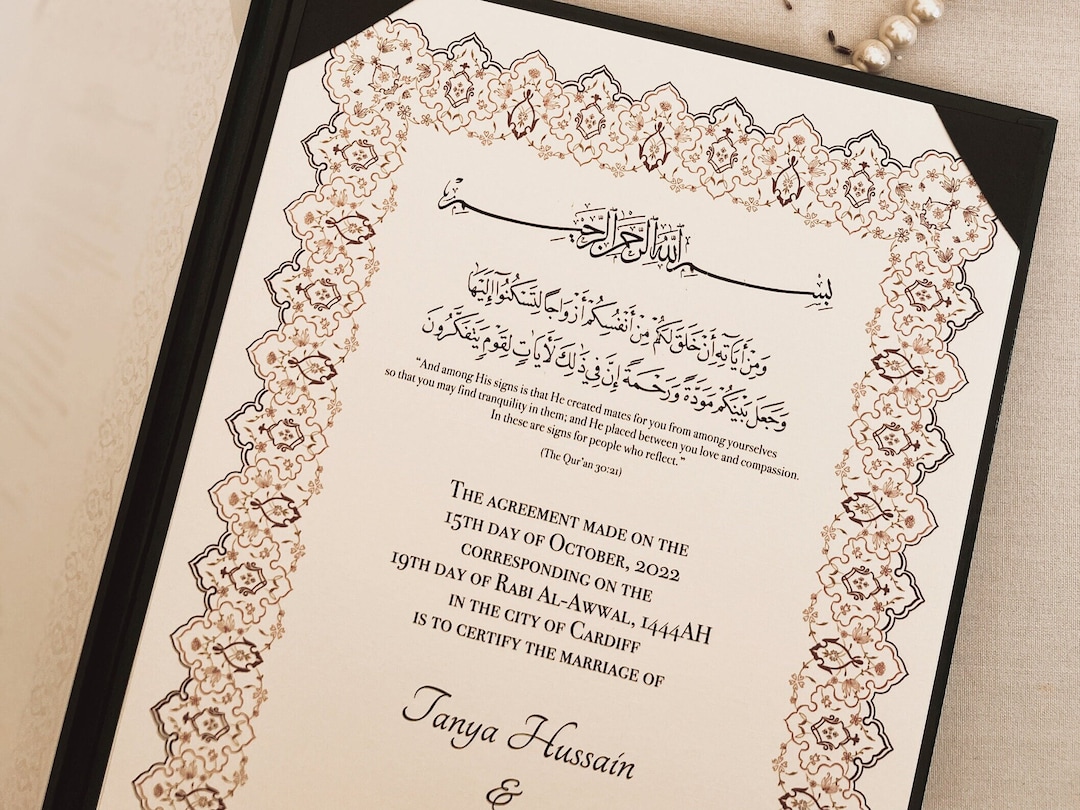 بِسْمِ اللَّهِ الرَّحْمَٰنِ الرَّحِيمِ
وَمِنْ آيَاتِهِ أَنْ خَلَقَ لَكُمْ مِنْ أَنْفُسِكُمْ أَزْوَاجًا لِتَسْكُنُوا إِلَيْهَا
وَجَعَلَ بَيْنَكُمْ مَوَدَّةً وَرَحْمَةً إِنَّ فِي ذَٰلِكَ لَآيَاتٍ لِقَوْمٍ يَتَفَكَّرُونَ
“And among His signs is that He created mates for you from among yourselves
so that you may find tranquility in them; and He placed between you love and compassion.
In these are signs for people who reflect.”
(The Qur’an 30:21)
The agreement made on the
15th day of October, 2022
corresponding on the
19th day of Rabi Al-Awwal, 1444AH
in the city of Cardiff
is to certify the marriage of
Tanya Hussain
&